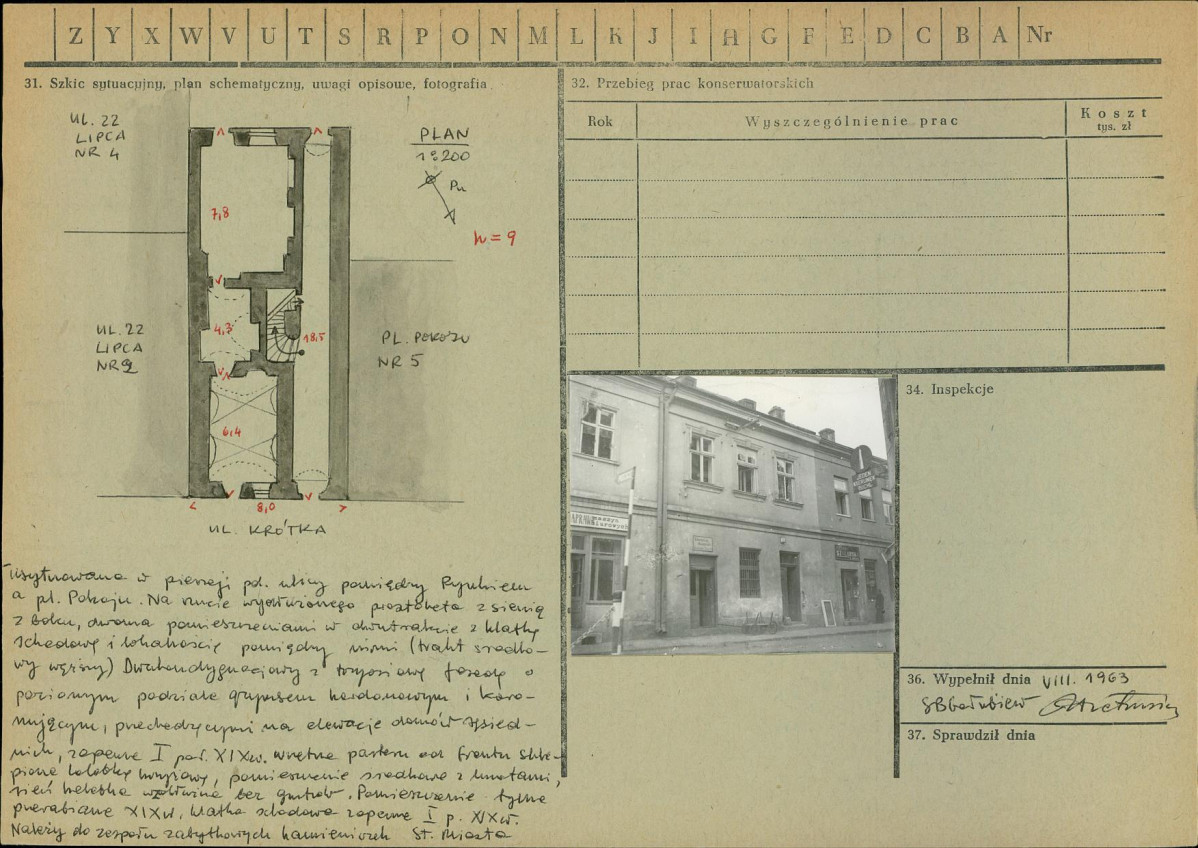 Z Y X W V U T S R P O N M L K J I H G F E D C B A Nr
31. Szkic sytuacyjny, plan schematyczny, uwagi opisowe, fotografia
UL. 22
LIPCA
NR 4
PLAN
1:200
Pn
h = 9
7,8
4,3
18,5
6,4
8,0
UL. 22
LIPCA
NR 2
PL. POKOJU
NR 5
UL. KRÓTKA
Usytuowana w pierzeji pd. ulicy pomiędzy Rynkiem
a pl. Pokoju. Na rzucie wydłużonego prostokąta z sienią
z boku, dwoma pomieszczeniami w dwutrakcie z klatką
schodową i lokalnością pomiędzy nimi (trakt środko-
wy węższy) Dwukondygnacjowy z trzyosiową fasadą o
poziomym podziale gzymsem kordonowym i koro-
nującym, przechodzącymi na elewacje domów sąsied-
nich, zapewne I poł. XIX w. wnętrza parteru od frontu skle-
pione kolebką krzyżową, pomieszczenie środkowe z lunetami,
sień kolebka bez gurtów. Pomieszczenie tylne
przerabiane XIX w. klatka schodowa zapewne I p. XIX w.
Należy do zespołu zabytkowych kamieniczek St. Miasta
32. Przebieg prac konserwatorskich
Rok
Wyszczególnienie prac
Koszt
tys. zł
34. Inspekcje
36. Wypełnił dnia VIII. 1963
37. Sprawdził dnia